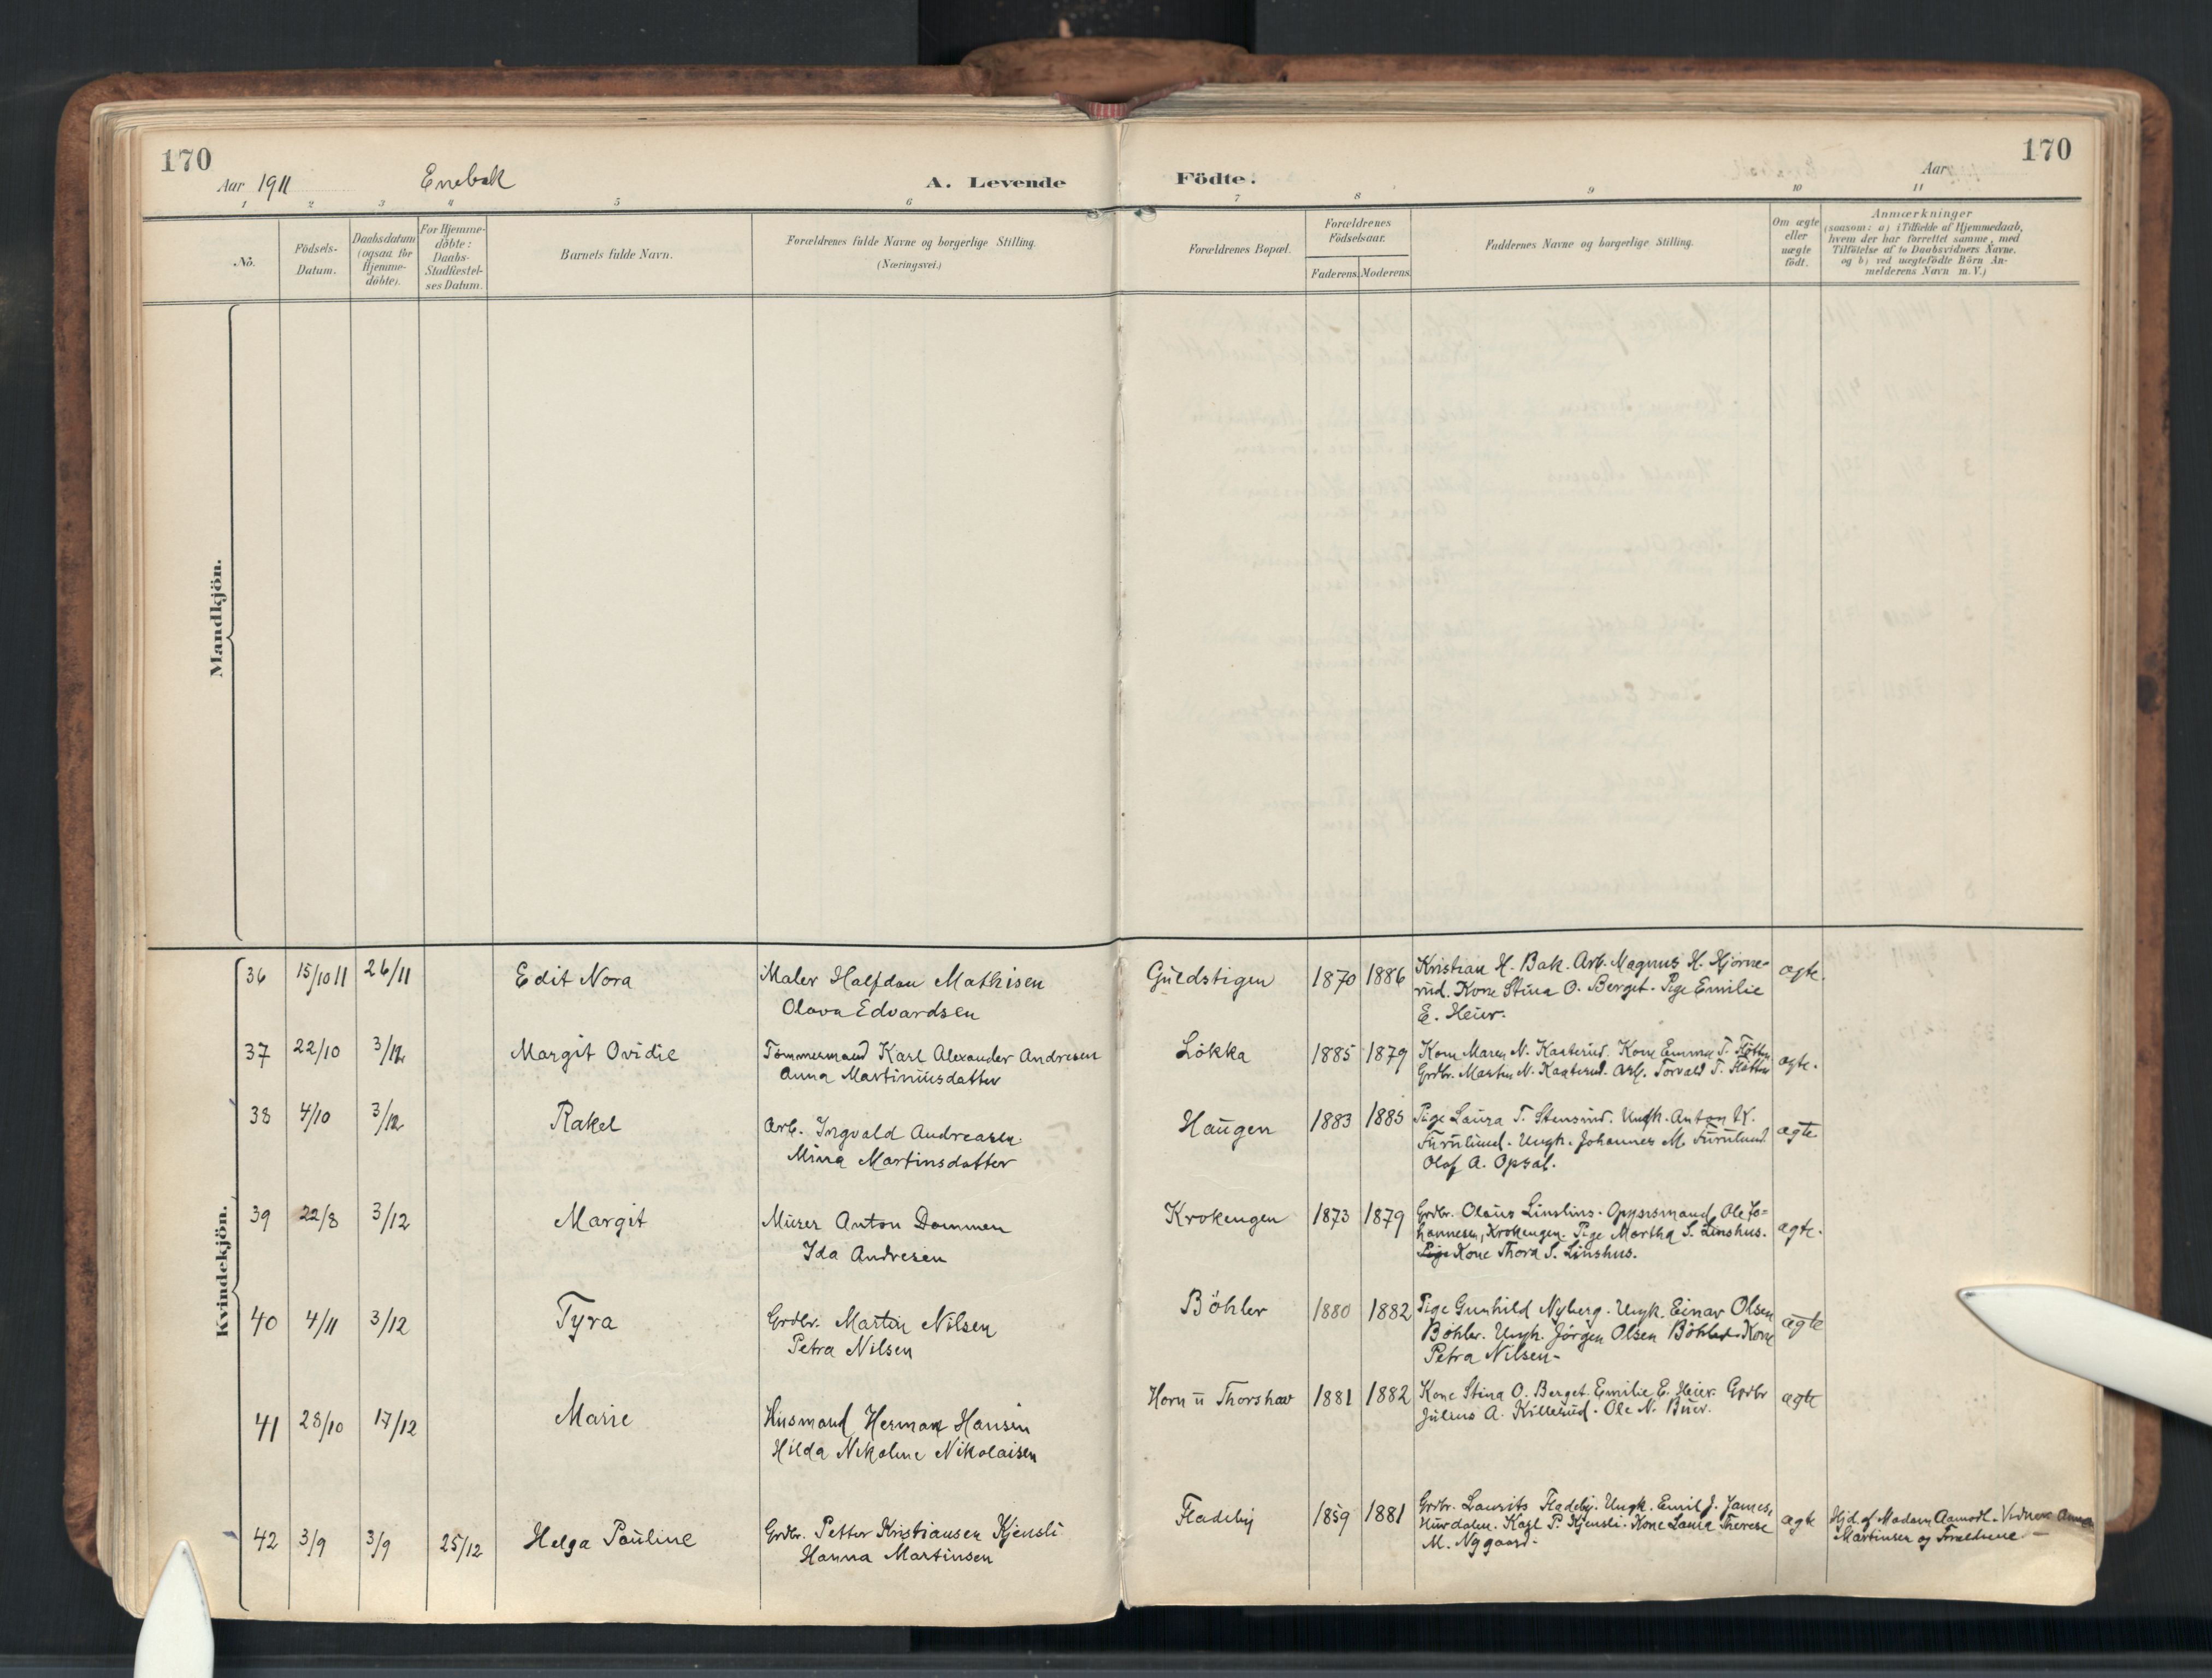 170
170
Aar 1911
Enebak
A. Levende
Födte.
Aar
1 2 3 4 5 6 7 8 9 10 11
No.
Födsels-
Datum.
Daabsdatum
(ogsaa for
Hjemme-
döbte).
For Hjemme-
döbte:
Daabs-
Stadfæstel-
ses Datum.
Barnets fulde Navn.
Forældrenes fulde Navne og borgerlige Stilling.
(Næringsvei.)
Forældrenes Bopæl.
Forældrenes
Födselsaar.
Faderens. Moderens.
Faddernes Navne og borgerlige Stilling.
Om ægte
eller
uægte
födt.
Anmærkninger
(saasom: a) i Tilfælde af Hjemmedaab,
hvem der har forrettet samme, med
Tilföielse af to Daabsvidners Navne.
og b) ved uægtefödte Börn An-
melderens Navn m. V.)
Mandkjön.
Kvindekjön.
36 15/10 11 26/11 Edit Nora
Maler Halfdan Mathisen
Olava Edvardsen
Guldstigen 1870 1886
Kristian H. Bak. Arb. Magnus H. Hjörne-
rud. Kone Stina O. Berget. Pige Emilie
E. Heier.
ægte.
37 22/10 3/12 Margit Ovidie
Tömmermand Karl Alexander Andresen
Anna Martiniusdatter
Lökka 1885 1879
Kone Maren N. Kaaterud. Kone Emma T.
Grdbr. Martin N. Kaaterud. Arb. Torvald T.
ægte.
38 4/10 3/12 Rakel
Arb. Ingvald Andreasen
Mina Martinsdatter
Haugen 1883 1885
Pige Laura T. Stensrud. Ungk. Anton K.
Furulund. Ungk. Johannes M. Furulund.
Olaf A. Opsal.
ægte
39 22/8 3/12 Margit
Murer Anton Dammen
Ida Andresen
Krokengen 1873 1879
Grdbr. Olaus Linshus. Opysmand Ole Jo=
hannesen, Krokengen. Pige Martha S. Linshus.
Pige Kone Thora S. Linshus.
ægte.
40 4/11 3/12 Tyra
Grdbr. Martin Nilsen
Petra Nilsen
Böhler 1880 1882
Pige Gunhild Nyberg. Ungk. Einar Olsen
Böhler. Ungk. Jörgen Olsen Böhler. Kone
Petra Nilsen-
ægte
41 28/10 17/12 Marie
Husmand Herman Hansen
Hilda Nikoline Nikolaisen
Horn u Thorshav 1881 1882
Kone Stina O. Berget. Emilie E. Heier. Grdbr
Julius A. Killerud. Ole N. Buer.
ægte
42 3/9 3/9 25/12 Helga Pauline
Grdbr. Petter Kristiansen Kjensli
Hanna Martinsen
Fladeby 1859 1881
Grdbr. Laurits Fladeby. Ungk. Emil J.
Hurdalen. Karl P. Kjensli. Kone Laura Therese
M. Nygaard.
ægte
Hjd. af Madam Aamodt. Vidner Anna
Martinsen og Forældrene.